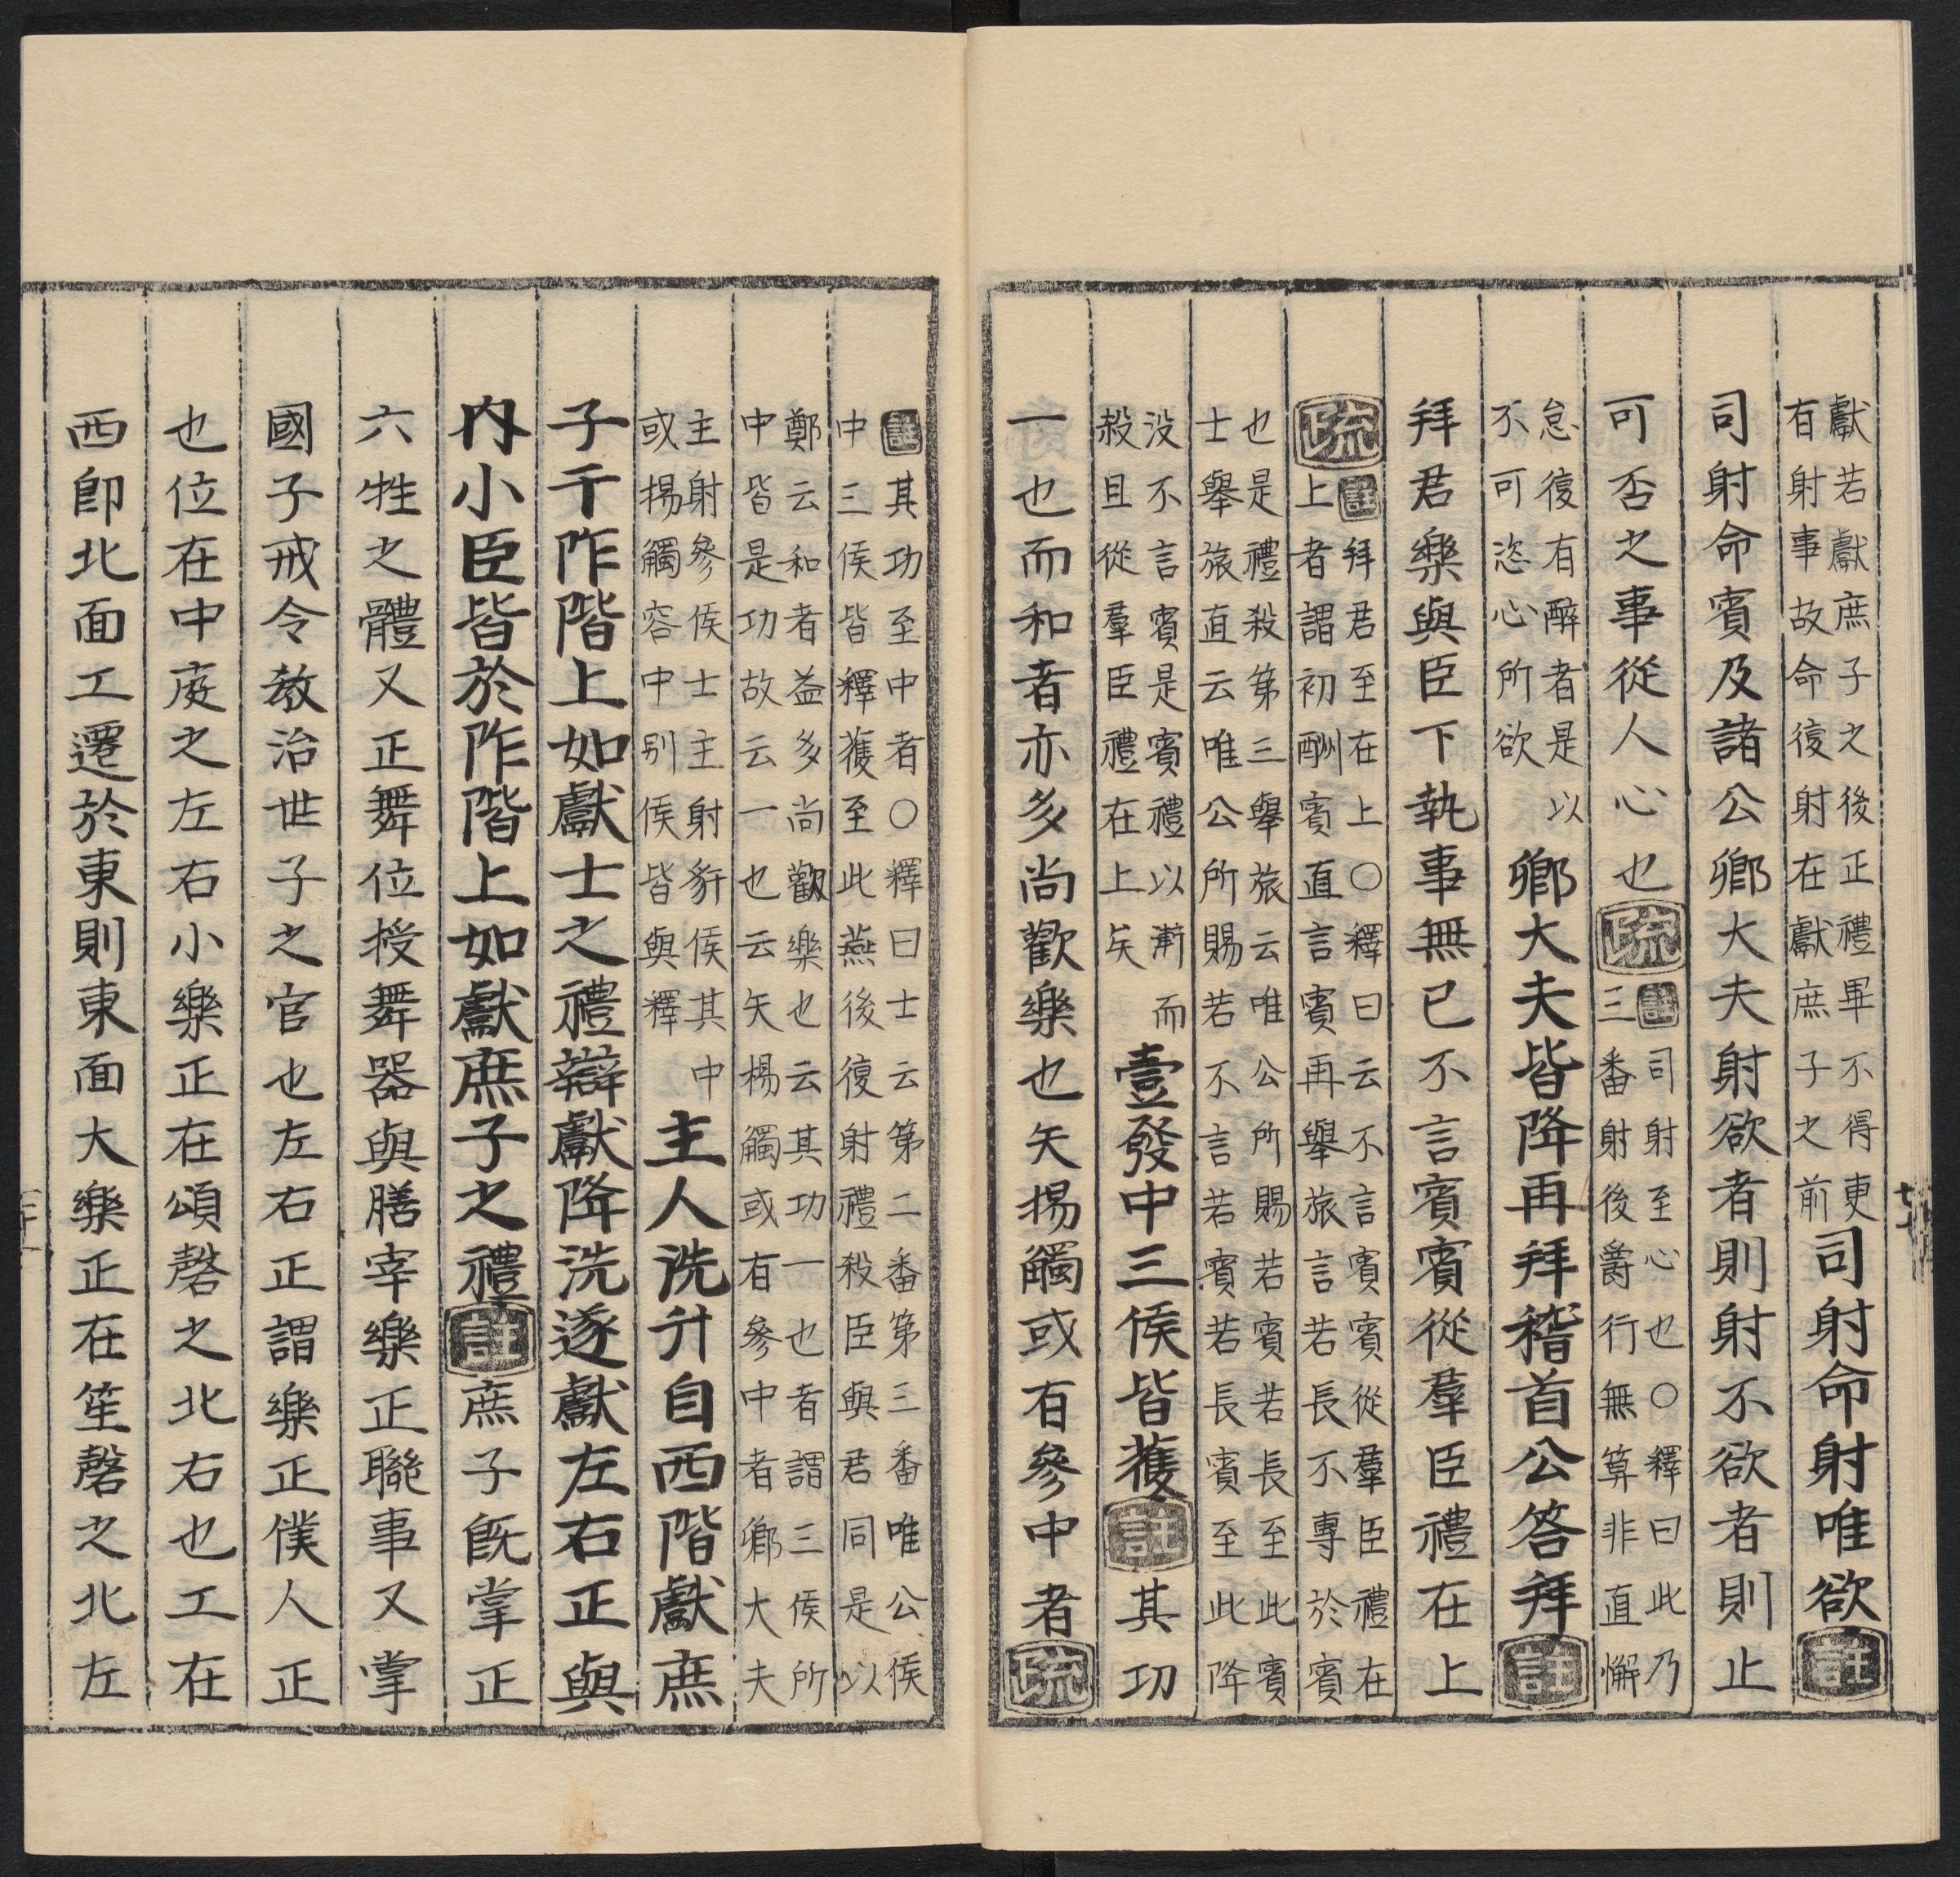 獻若獻庶子之後正禮畢不得更
有射事故命復射在獻庶子之前
司射命射唯欲註
司射命賓及諸公卿大夫射欲者則射不欲者則止
可否之事從人心也疏
註司射至心也○釋曰此乃
三番射後爵行無算非直懈
怠復有醉者是以
不可恣心所欲
卿大夫皆降再拜稽首公答拜註
拜君樂與臣下執事無已不言賓賓從羣臣禮在上
疏
註拜君至在上○釋曰云不言賓賓從羣臣禮在
上者謂初酬賓直言賓再舉旅言若長不專於賓
也是禮殺第三舉旅云唯公所賜若賓若長至此賓
士舉旅直云唯公所賜若不言若賓若長賓至此降
没不言賓是賓禮以漸而
殺且從羣臣禮在上矣
壹發中三侯皆獲註其功
一也而和者亦多尚歡樂也矢揚觸或有參中者疏
註其功至中者○釋曰士云第二番第三番唯公侯
中三侯皆釋獲至此燕後復射禮殺臣與君同是以
鄭云和者益多尚歡樂也云其功一也者謂三侯所
中皆是功故云一也云矢楊觸或有參中者鄉大夫
主射參侯士主射豻侯其中
或揚觸容中别侯皆與釋
主人洗升自西階獻庶
子于阼階上如獻士之禮辯獻降洗遂獻左右正與
內小臣皆於阼階上如獻庶子之禮註庶子旣掌正
六牲之體又正舞位授舞器與膳宰樂正聮事又掌
國子戒令敎治世子之官也左右正謂樂正僕人正
也位在中庭之左右小樂正在頌磬之北右也工在
西卽北面工遷於東則東面大樂正在笙磬之北左